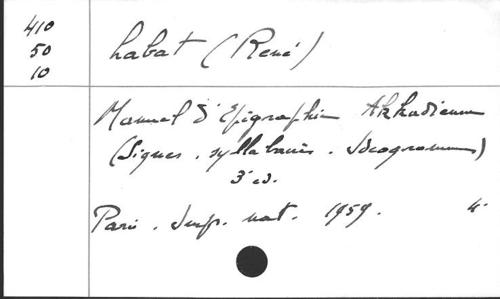 410
50
10
Labat (René)
Manuel d'Epigraphie Akkadienne
(Signes. syllabaires. Ideogrammes)
3e ed.
Paris. Imp. nat. 1959. 4°